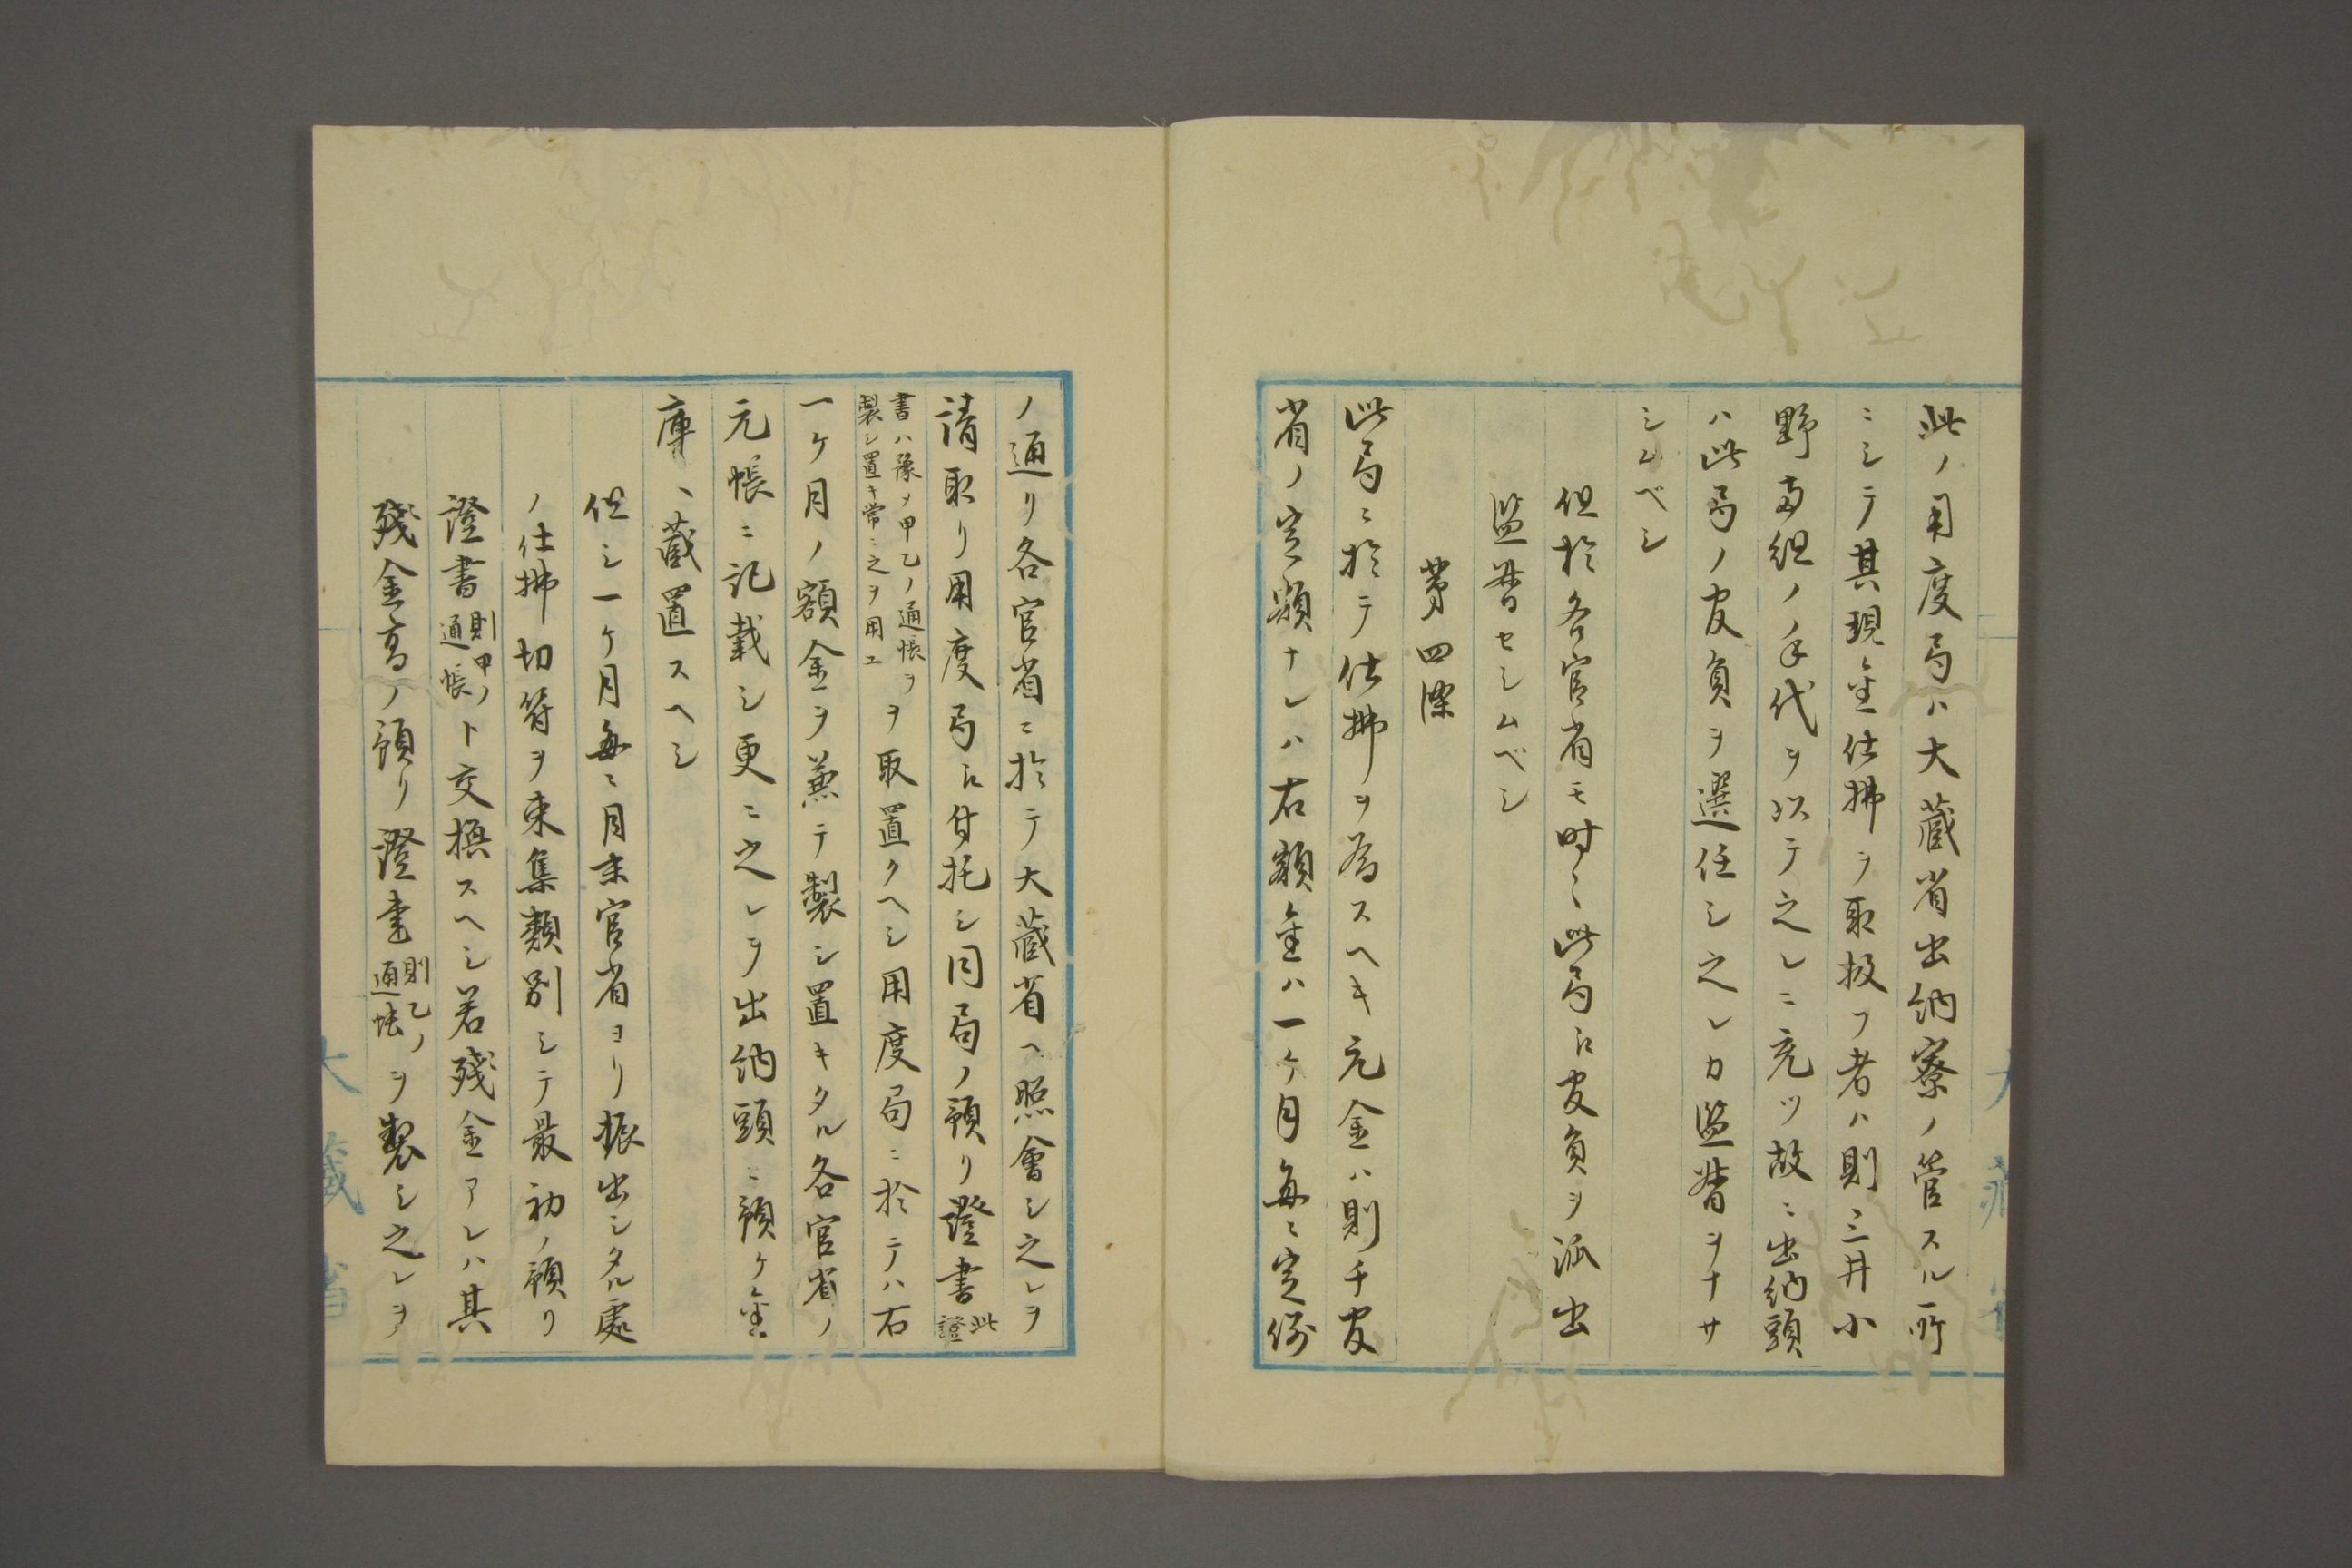 此ノ用度局ハ大蔵省出納寮ノ管スル所
ニシテ其現金仕拂ヲ取扱フ者ハ則三井小
野両組ノ手代ヲ以テ之レニ充ツ故ニ出納頭
ハ此局ノ官員ヲ選任シ之レカ監督ヲナサ
シムベシ
但於各官省モ時々此局ニ官員ヲ派出
監督セシムベシ
第四條
此局ニ於テ仕拂ヲ為スヘキ元金ハ則チ官
省ノ定額ナレハ右額金ハ一ケ月毎ニ定例
ノ通リ各官省ニ於テ大蔵省ヘ照會シ之レヲ
請取リ用度局ニ付托シ同局ノ預リ證書此證
書ハ豫メ甲乙ノ通帳ヲ
製シ置キ常ニ之ヲ用ユ
ヲ取置クヘシ用度局ニ於テハ右
一ケ月ノ額金ヲ兼テ製シ置キタル各官省ノ
元帳ニ記載シ更ニ之レヲ出納頭ニ預ケ金
庫ヘ蔵置スヘシ
但シ一ケ月毎ニ月末官省ヨリ振出シタル處
ノ仕拂切符ヲ束集類別シテ最初ノ預リ
證書則甲ノ通帳ト交換スヘシ若残金アレハ其
殘金高ノ預リ證書則乙ノ通帳ヲ製シ之レヲ
大蔵省